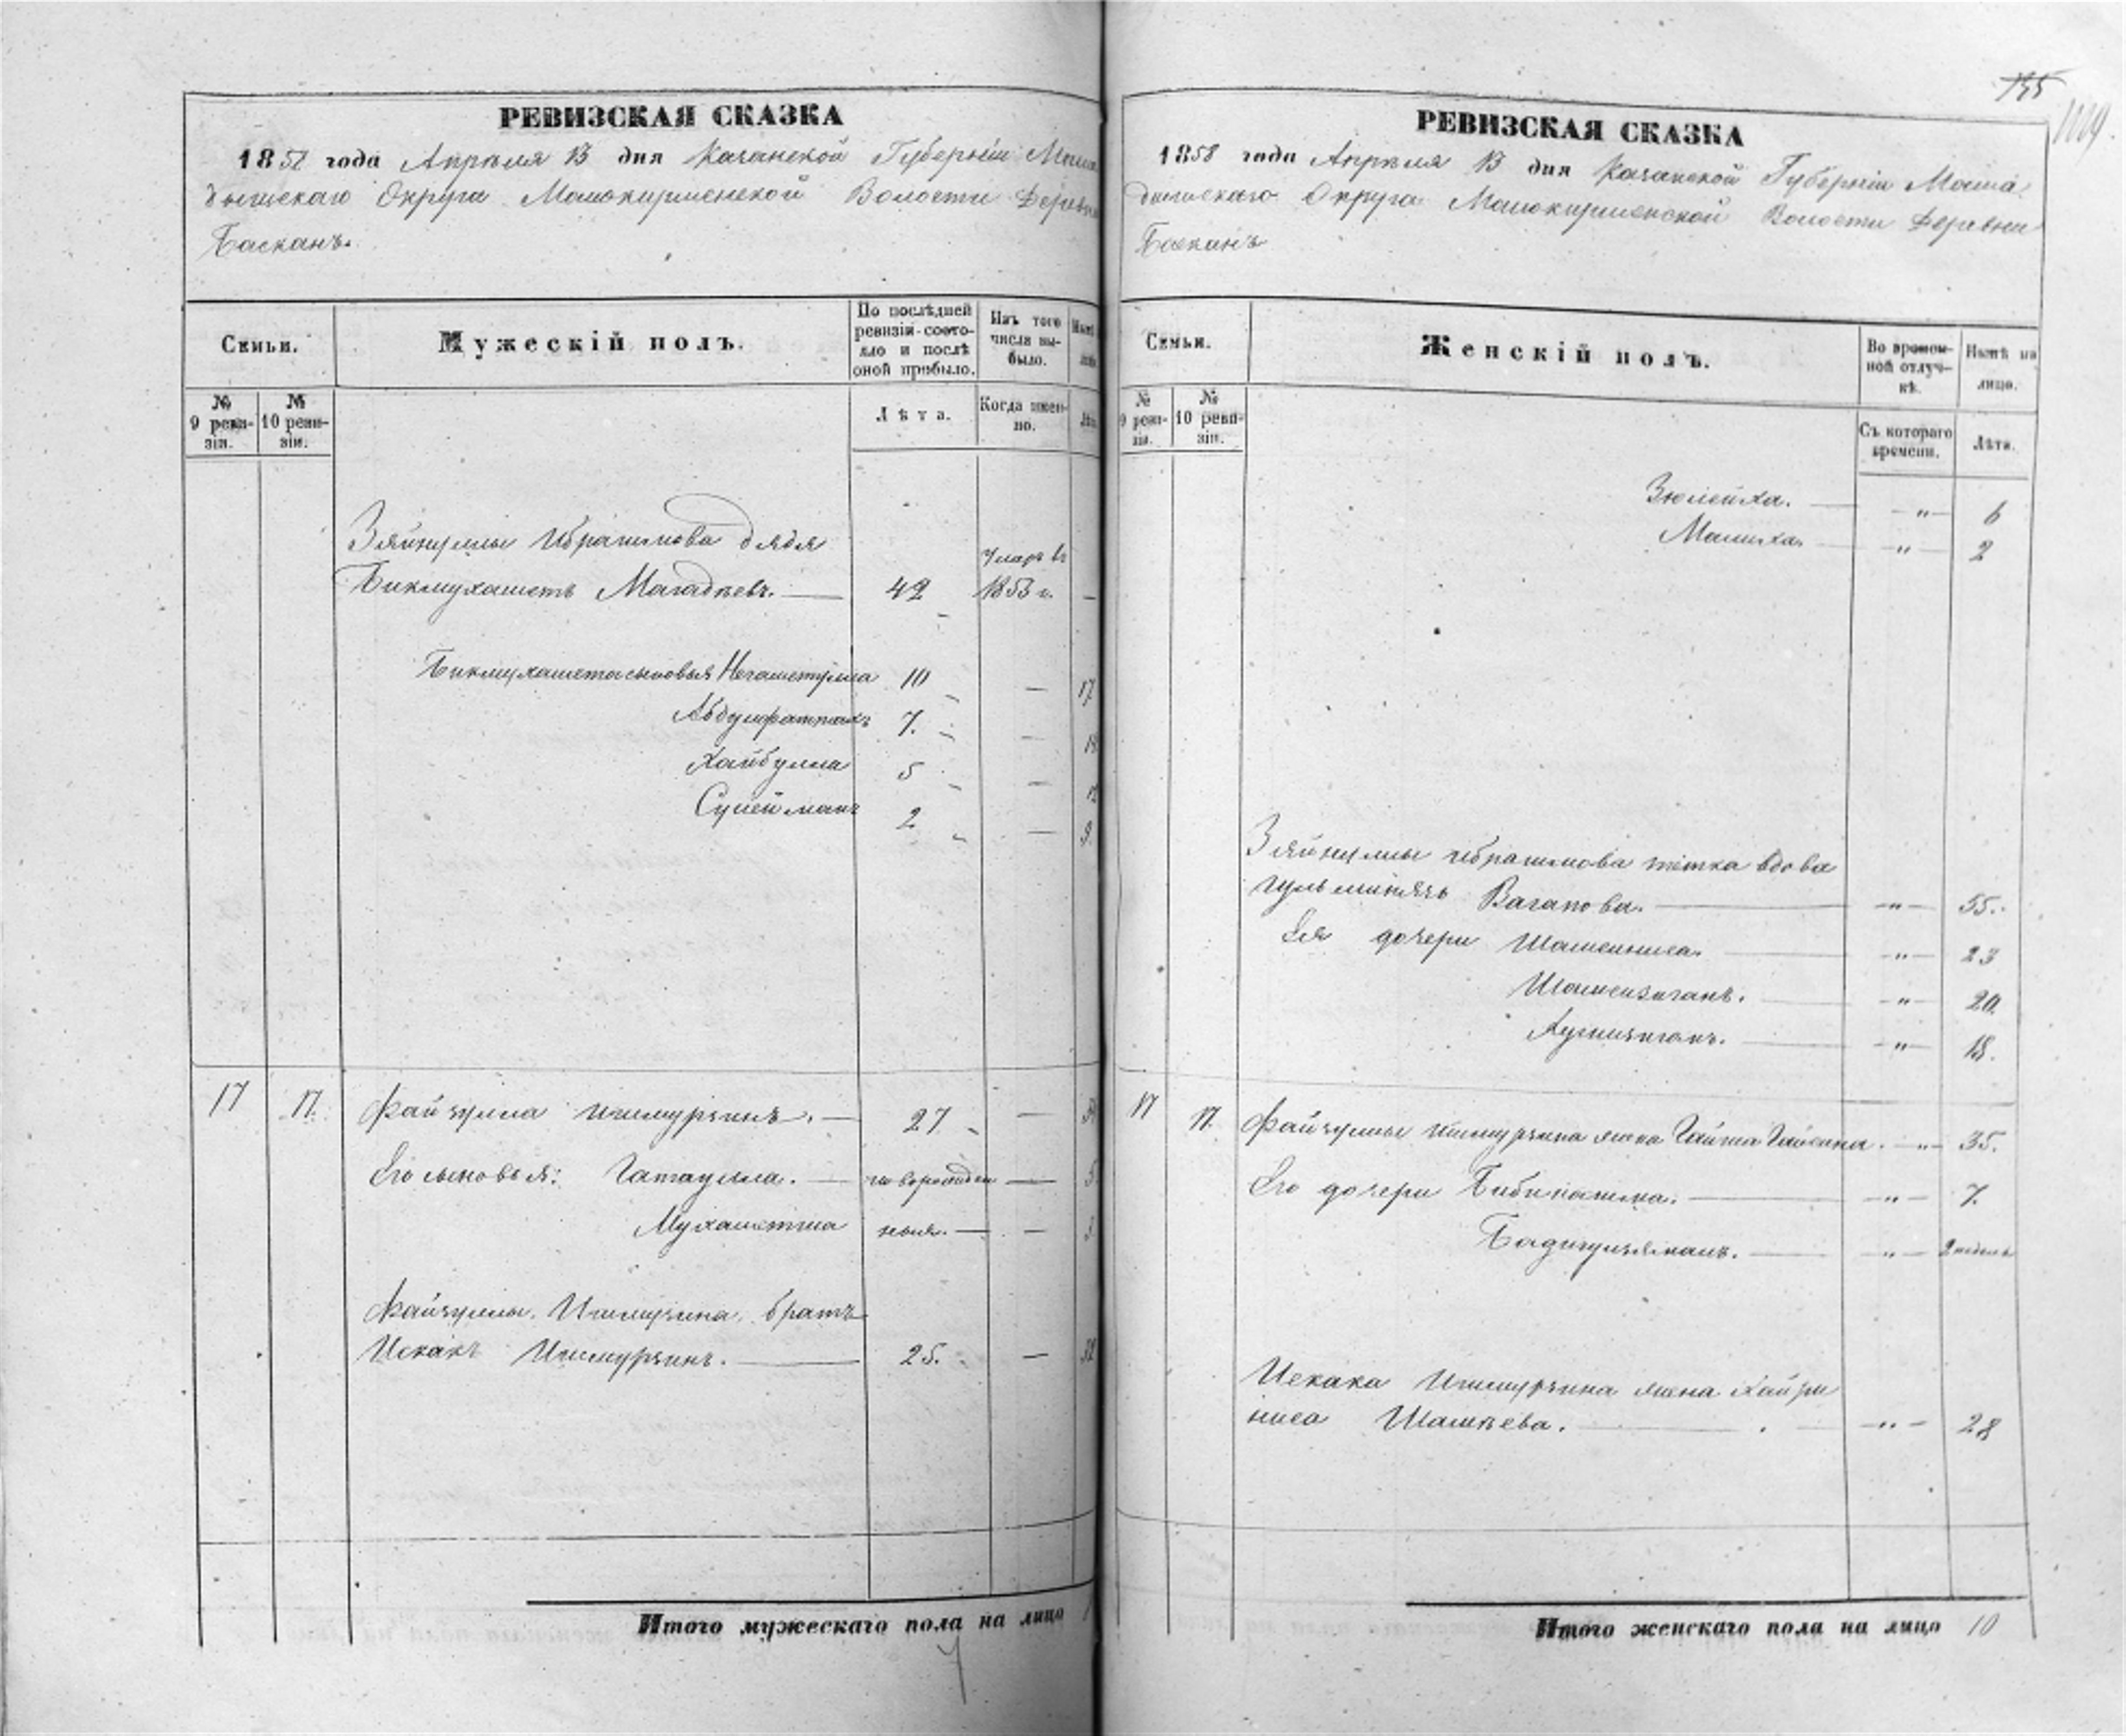 РЕВИЗСКАЯ СКАЗКА
1858 года Апрѣля 13 дня Казанской Губерніи Мама
дышскаго Округа Мамокирменской Волости Деревни
Басканъ.
Семьи.
Мужескій полъ.
По послѣдней
ревизіи состо-
яло и послѣ
оной прибыло.
Изъ того
числа вы-
было.
№
9 реви-
зіи.
№
10 реви-
зіи.
Лѣта.
Когда имен-
но.
Зяйнуллы Ибрагимова дядя
Умеръ въ
Бикмухаметъ Магадѣевъ. 42 1853 г. —
Бикмухамета сыновья Негаметулла 10 — 17
Абдулфаттахъ 7. —
Хайбулла 5 —
Сулейманъ 2 — 9.
17 17. Файзулла Ишмурзинъ. — 27 —
Его сыновья: Гатаулла. — новорожден —
Мухаметша ныя. — —
Файзуллы Ишмурзина братъ
Исхакъ Ишмурзинъ. — 25. —
Итого мужескаго пола на лицо
7
155
РЕВИЗСКАЯ СКАЗКА
1858 года Апрѣля 13 дня Казанской Губерніи Мама
дышскаго Округа Мамокирменской Волости Деревни
Басканъ
Семьи.
Женскій полъ.
Во времен-
ной отлуч-
кѣ.
Нынѣ на
лицо.
№
9 реви-
зіи.
№
10 реви-
зіи.
Съ котораго
времени.
Лѣта.
Зюлейха. — „ — 6
Малиха. — „ — 2
Зяйнуллы Ибрагимова тетка вдова
Вагапова. — „ — 55.
Ея дочери Шамсиниса. — „ — 23
Шамсизиганъ. — „ — 20.
— „ — 18.
17 17. Файзуллы Ишмурзина жена Гайша Гайсина. — „ — 35.
Его дочери Бибифатима. — „ — 7.
Бадигулзяманъ. — „ — 2 недель
Исхака Ишмурзина жена Хайри
ниса Шамѣева. — „ — 28
Итого женскаго пола на лицо 10